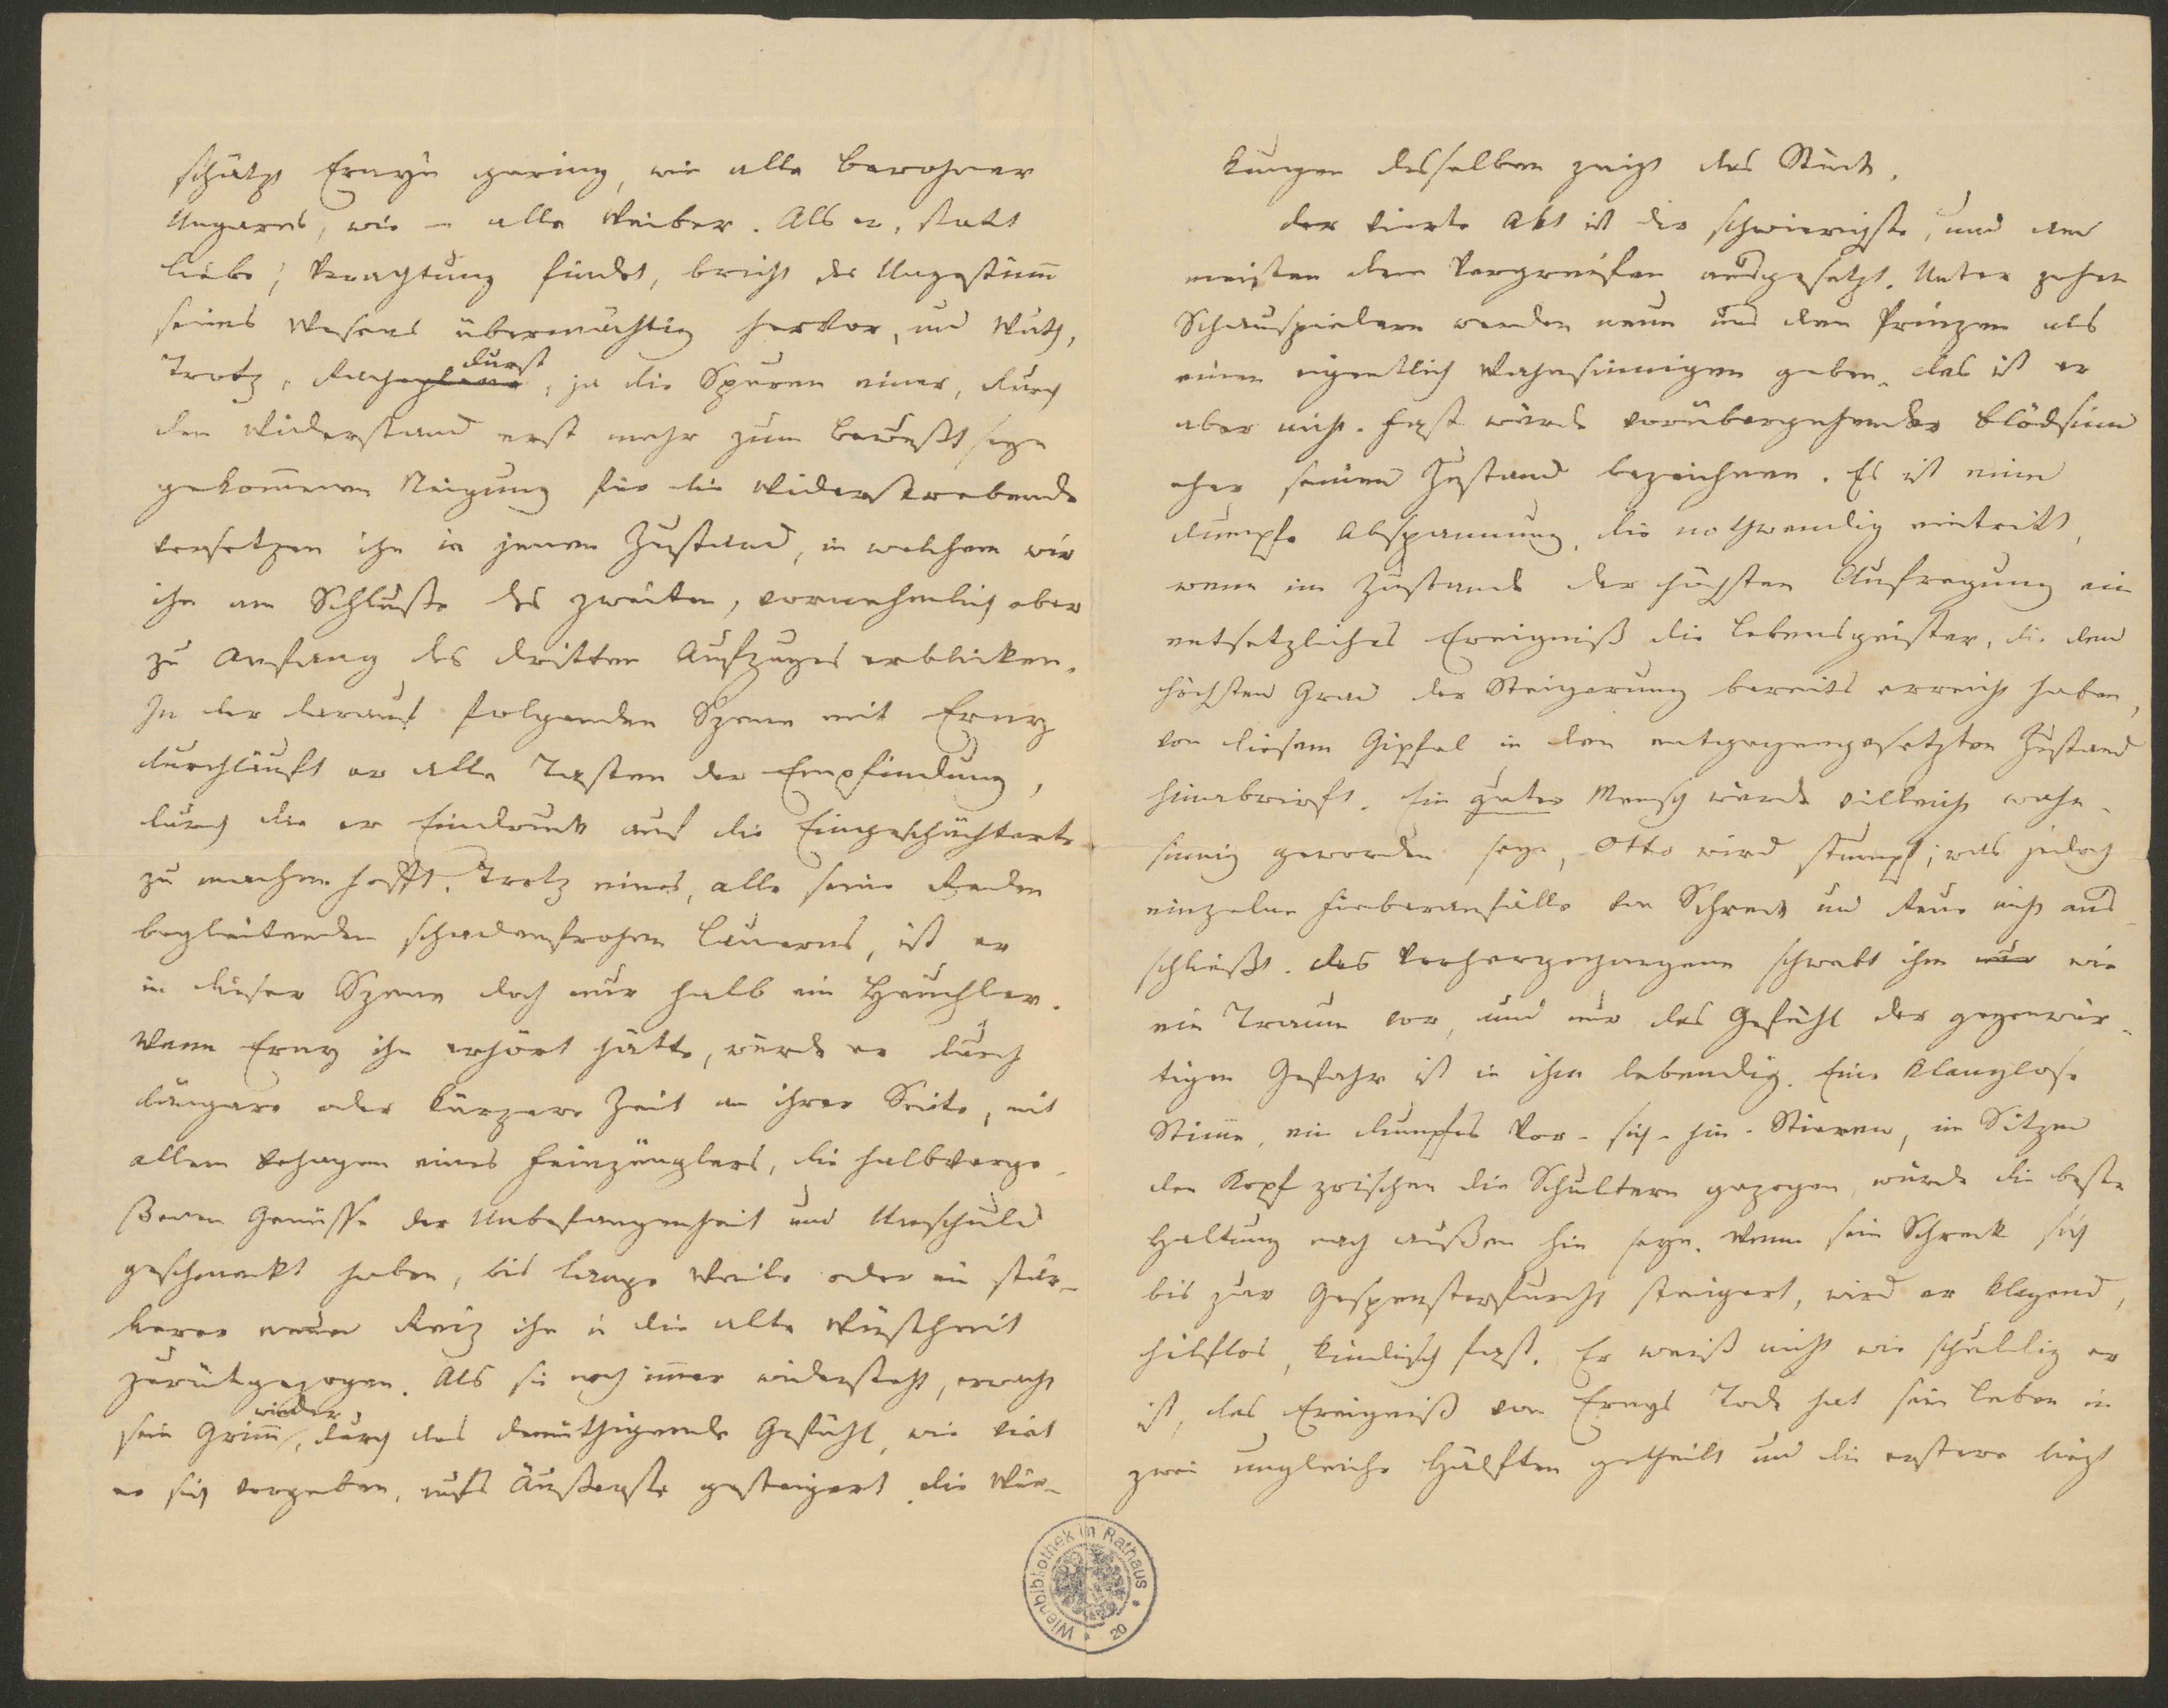 schätzt Ernyn gering, wie alle Bewohner
Ungarns, wie – alle Weiber. Als er, statt
Liebe, Verachtung findet, bricht das Ungestümm
seines Wesens übermächtig hervor, und Wuth,
durst
Trotz, Racheplane, ja die Spuren einer, durch
den Widerstand erst mehr zum Bewußtseyn
gekommenen Neigung für die Widerstrebende
versetzen ihn in jenen Zustand, in welchem wir
ihn am Schluße des zweiten, vornehmlich aber
zu Anfang des dritten Aufzuges erblicken.
In der darauf folgenden Szene mit Erny
durchläuft er alle Tasten der Empfindung,
durch die er Eindruck auf die Eingeschüchterte
zu machen hofft. Trotz eines, alle seine Reden
begleitenden schadenfrohen Lauerns, ist er
in dieser Szene doch nur halb ein Heuchler.
Wenn Erny ihn erhört hätte, würde er durch
längere oder kürzere Zeit an ihrer Seite, mit
allem Behagen eines Feinzünglers, die halbverge-
ßenen Genüsse der Unbefangenheit und Unschuld
geschmeckt haben, bis lange Weile oder ein stär-
kerer neuer Reiz ihn in die alte Wüstheit
zurückgezogen. Als sie noch immer widersteht, erwacht
wieder,
sein Grimm, durch das demüthigende Gefühl, wie viel
er sich vergeben, aufs Äußerste gesteigert. Die Wir-
kungen desselben zeigt das Stück.
Der vierte Akt ist der schwierigste, und am
meisten dem Vergreifen ausgesetzt. Unter zehen
Schauspielern werden neun uns den Prinzen als
einen eigentlich Wahnsinnigen geben. das ist er
aber nicht. Fast würde vorübergehender Blödsinn
eher seinen Zustand bezeichnen. Es ist eine
dumpfe Abspannung, die nothwendig eintritt,
wenn im Zustande der höchsten Aufregung ein
entsetzliches Ereigniß die Lebensgeister, die den
höchsten Grad der Steigerung bereits erreicht haben,
von diesem Gipfel in den entgegengesetzten Zustand
hinabwirft. Ein guter Mensch würde villeicht wahn-
sinnig geworden seyn, Otto wird stumpf; was jedoch
einzelne Fieberanfälle von Schreck und Reue nicht aus-
schließt. Das Vorhergegangene schwebt ihm nur wie
ein Traum vor, und nur das Gefühl der gegenwär-
tigen Gefahr ist in ihm lebendig. Eine klanglose
Stimme, ein dumpfes Vor-sich-hin-Stieren, im Sitzen
den Kopf zwischen die Schultern gezogen, würde die beste
Haltung nach außen hin seyn. Wenn sein Schreck sich
bis zur Gespensterfurcht steigert, wird er klagend,
hilflos, kindisch fast. Er weiß nicht wie schuldig er
ist, das Ereigniß von Ernys Tode hat sein Leben in
zwei ungleiche Hälften getheilt und die erstere liegt
Wienbibliothek im Rathaus * 20 *